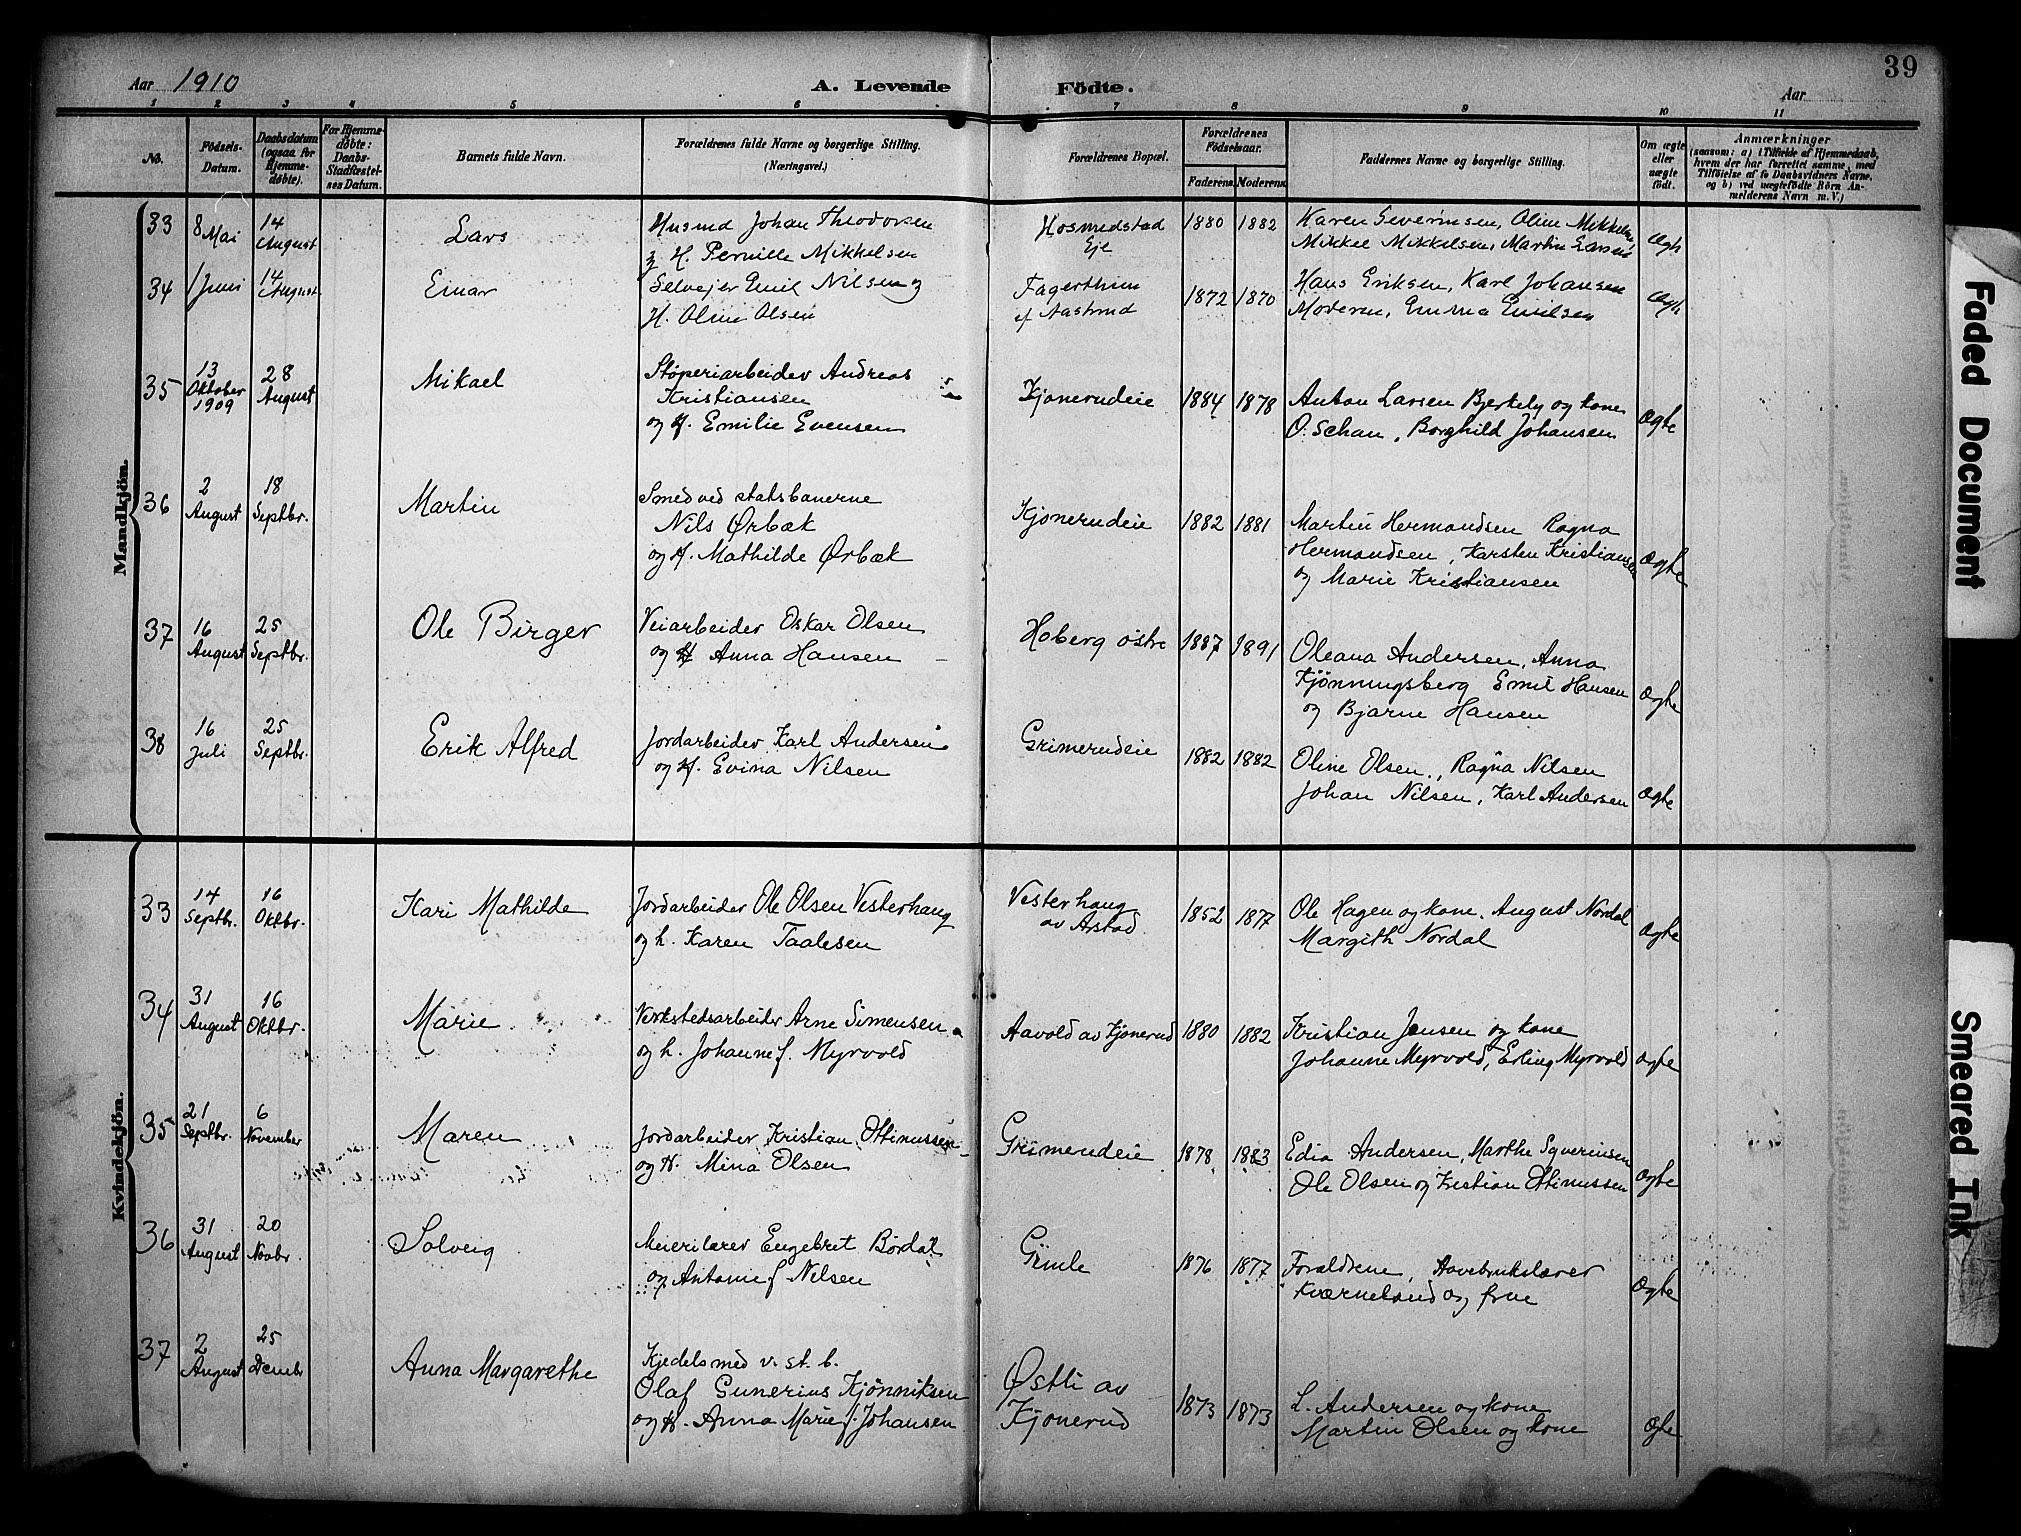 39
Aar 1910
A. Levende Fødte.
Aar
1 2 3 4 5 6 7 8 9 10 11
No.
Fødsels-
Datum.
Daabsdatum
(ogsaa for
Hjemme-
døbte).
For Hjemme-
døbte:
Daabs-
Stadfæstel-
ses Datum.
Barnets fulde Navn.
Forældrenes fulde Navne og borgerlige Stilling.
(Næringsvei.)
Forældrenes Bopæl.
Forældrenes
Fødselsaar.
Faderens Moderens
Faddernes Navne og borgerlige Stilling.
Om ægte
eller
uægte
født.
Anmærkninger
(saasom: a) i Tilfælde af Hjemmedaab,
hvem der har forrettet samme, med
Tilføielse af to Daabsvidners Navne,
og b) ved uegtefødte Börn An-
melderens Navn m. V.)
Mandkjön.
33
8 Mai
14
August
Lars
Husmd Johan Theodorsen
og H. Pernille Mikkelsen
Hosmedstad
Eje
1880 1882
Karen Severinsen, Oline Mikkelsen,
Mikkel Mikkelsen, Martin Larsen
Ægt
34
1 Juni
14
August
Einar
Selvejer Emil Nilsen og
H. Oline Olsen
Fagerthim
af Aastrud
1872 1870
Hans Eriksen, Karl Johansen
Moderen, Emma Emilsen
Ægt
35
13
Oktober
1909
28
August
Mikael
Støperiarbeider Andreas
Kristiansen
og H. Emilie Evensen
Kjonerudeie
1884 1878
Anton Larsen Bjerkely og kone
O. Schau, Borghild Johansen
Ægte
36
2
August
18
Septbr.
Martin
Smed ved statsbanerne
Nils Ørbæk
og H. Mathilde Ørbæk
Kjonerudeie
1882 1881
Martin Hermandsen Ragna
Hermandsen, Karsten Kristiansen
og Marie Kristiansen
Ægte
37
16
August
25
Septbr.
Ole Birger
Veiarbeider Oskar Olsen
og H Anna Hansen
Hoberg østre
1887 1891
Oleana Andersen, Anna
Kjønningsberg Emil Hansen
og Bjarne Hansen
Ægte
38
16
Juli
25
Septbr.
Erik Alfred
Jordarbeider Karl Andersen
og H. Evina Nilsen
Grimerudeie
1882 1882
Oline Olsen, Ragna Nilsen
Johan Nilsen, Karl Andersen
Ægte
Kvindekjön.
33
14
Septbr.
16
Oktbr.
Kari Mathilde
Jordarbeider Ole Olsen Vesterhaug
og h. Karen Taalesen
Vesterhaug
av Arstad
1852 1877
Ole Hagen og kone, August Nordal
Margith Nordal
Ægte
34
31
August
16
Oktbr.
Marie
Verkstedsarbeider Arne Simensen
og h. Johanne f. Myrvold
Aavold av Kjonerud
1880 1882
Kristian Jensen og kone
Johanne Myrvold, Erling Myrvold
Ægte
35
21
Septbr.
6
November
Maren
Jordarbeider Kristian Ottinussen
og H. Mina Olsen
Grimerudeie
1878 1883
Edia Andersen, Marthe Syverinsen
Ole Olsen og Kristian Ottinussen
Ægte
36
31
August
20
Novbr.
Solveig
Meierilærer Engebret Børdal
og Antonie f Nelsen
Grimle
1876 1877
Foraldrene, Havebrukslærer
Kværneland og frue
Ægte
37
2
August
25
Dcmbr
Anna Margarethe
Kjedelsmed v. st. b.
Olaf Gunerius Kjønniksen
og H. Anna Marie f. Johansen
Østli av
Kjonerud
1873 1873
L. Andersen og kone
Martin Olsen og kone
Ægte
Faded Document
Smeared Ink